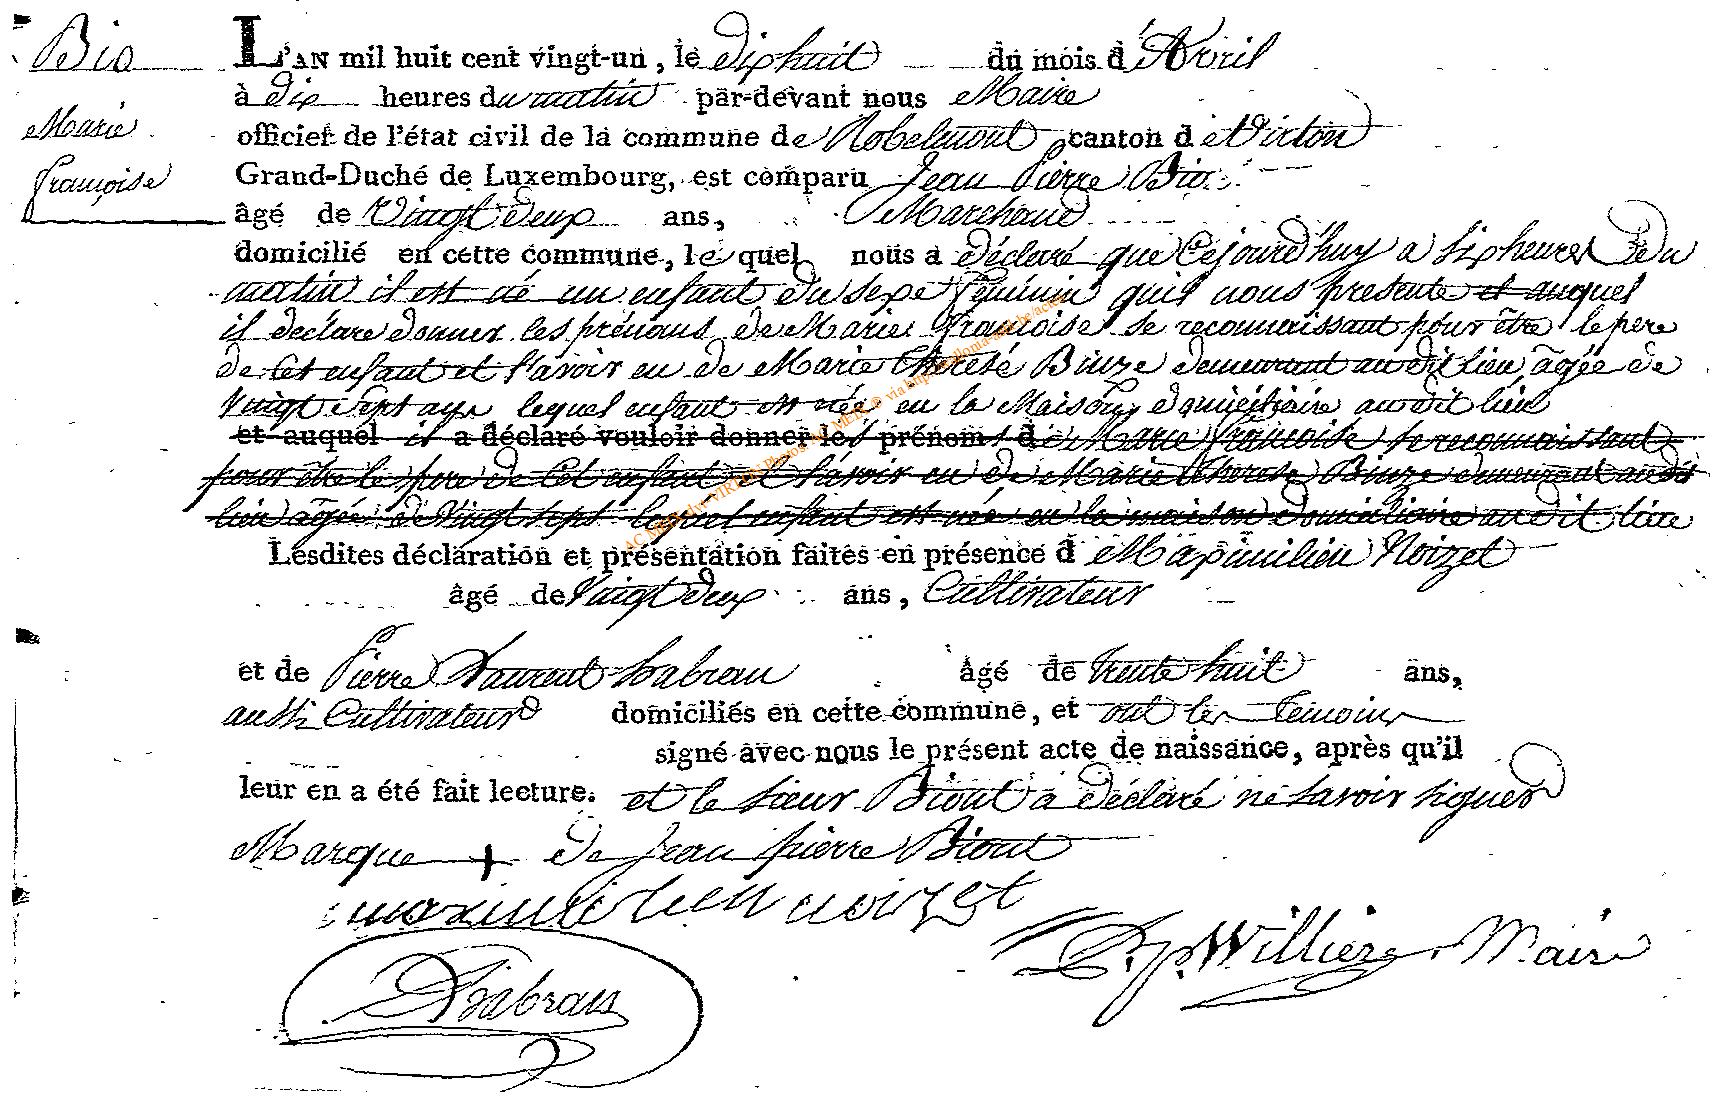 Bio
Marie
françoise
L'AN mil huit cent vingt-un, le dixhuit du mois d'Avril
à dix heures du matin par-devant nous Maire
officier de l'état civil de la commune de Robelmont canton de Virton
Grand-Duché de Luxembourg, est comparu Jean Pierre Bio
âgé de Vingt deux ans, Marchand
domicilié en cette commune, le quel nous a déclaré que Cejourd'huy a six heures du
matin il est né un enfant du sexe féminin quil nous presente et auquel
il déclare donner les prénoms de Marie françoise se reconnaissant pour être le pere
de Cet enfant et l'avoir eu de Marie Therese Binze demeurant au dit lieu âgée de
Vingt sept ans lequel enfant est née en la Maison domiciliaire au dit lieu
et auquel il a déclaré vouloir donner les prénoms de Marie françoise se reconnaissant
pour être le pere de Cet enfant et l'avoir eu de Marie Therese Binze demeurant au dit
lieu âgée de Vingt sept lequel enfant est née en la maison domiciliaire au dit lieu
Lesdites déclaration et présentation faites en présence d Maximilien Noizet
âgé de Vingt deux ans, Cultivateur
et de Pierre Laurent habrau âgé de trente huit ans,
aussi Cultivateur domiciliés en cette commune, et ont les témoins
signé avec nous le présent acte de naissance, après qu'il
leur en a été fait lecture. et le sieur Biout a déclaré ne savoir signer
Marque + de Jean pierre Biout
maximilien noizet
Williere Maire